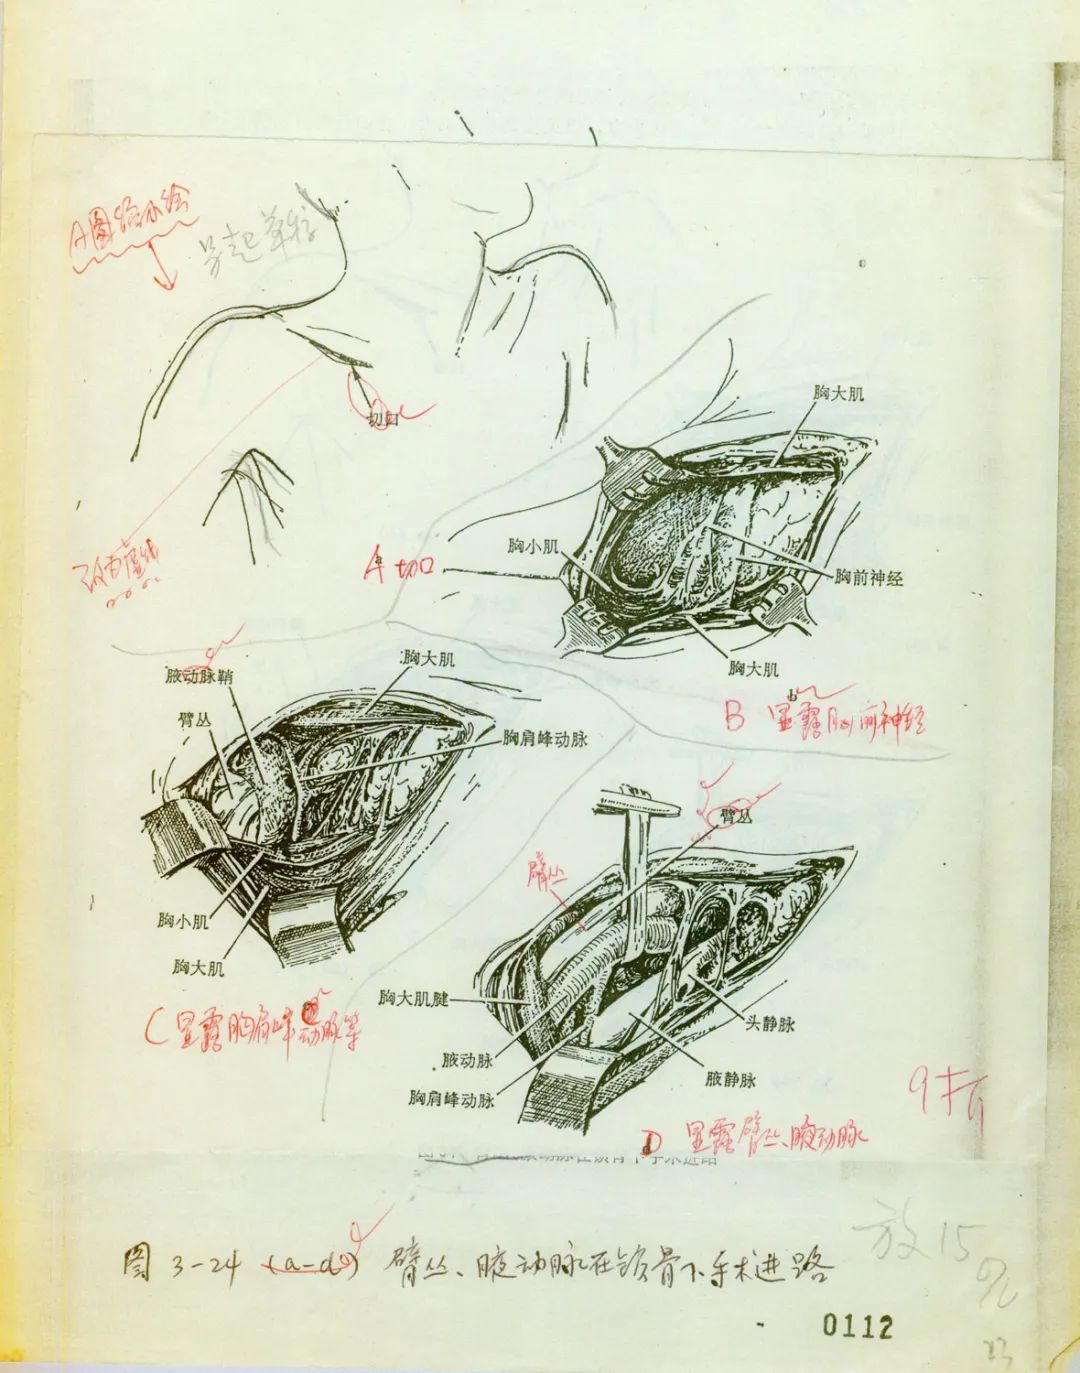 A图
另起草稿
切口
改为虚线
胸大肌
胸小肌
胸前神经
胸大肌
A 切口
b
B 显露胸前神经
腋动脉鞘
臂丛
胸大肌
胸肩峰动脉
胸小肌
胸大肌
C 显露胸肩峰动脉等
臂丛
臂丛
胸大肌腱
腋动脉
胸肩峰动脉
头静脉
腋静脉
D 显露臂丛、腋动脉
图 3-24 (a-d) 臂丛、腋动脉在锁骨下手术进路
放15%
0112